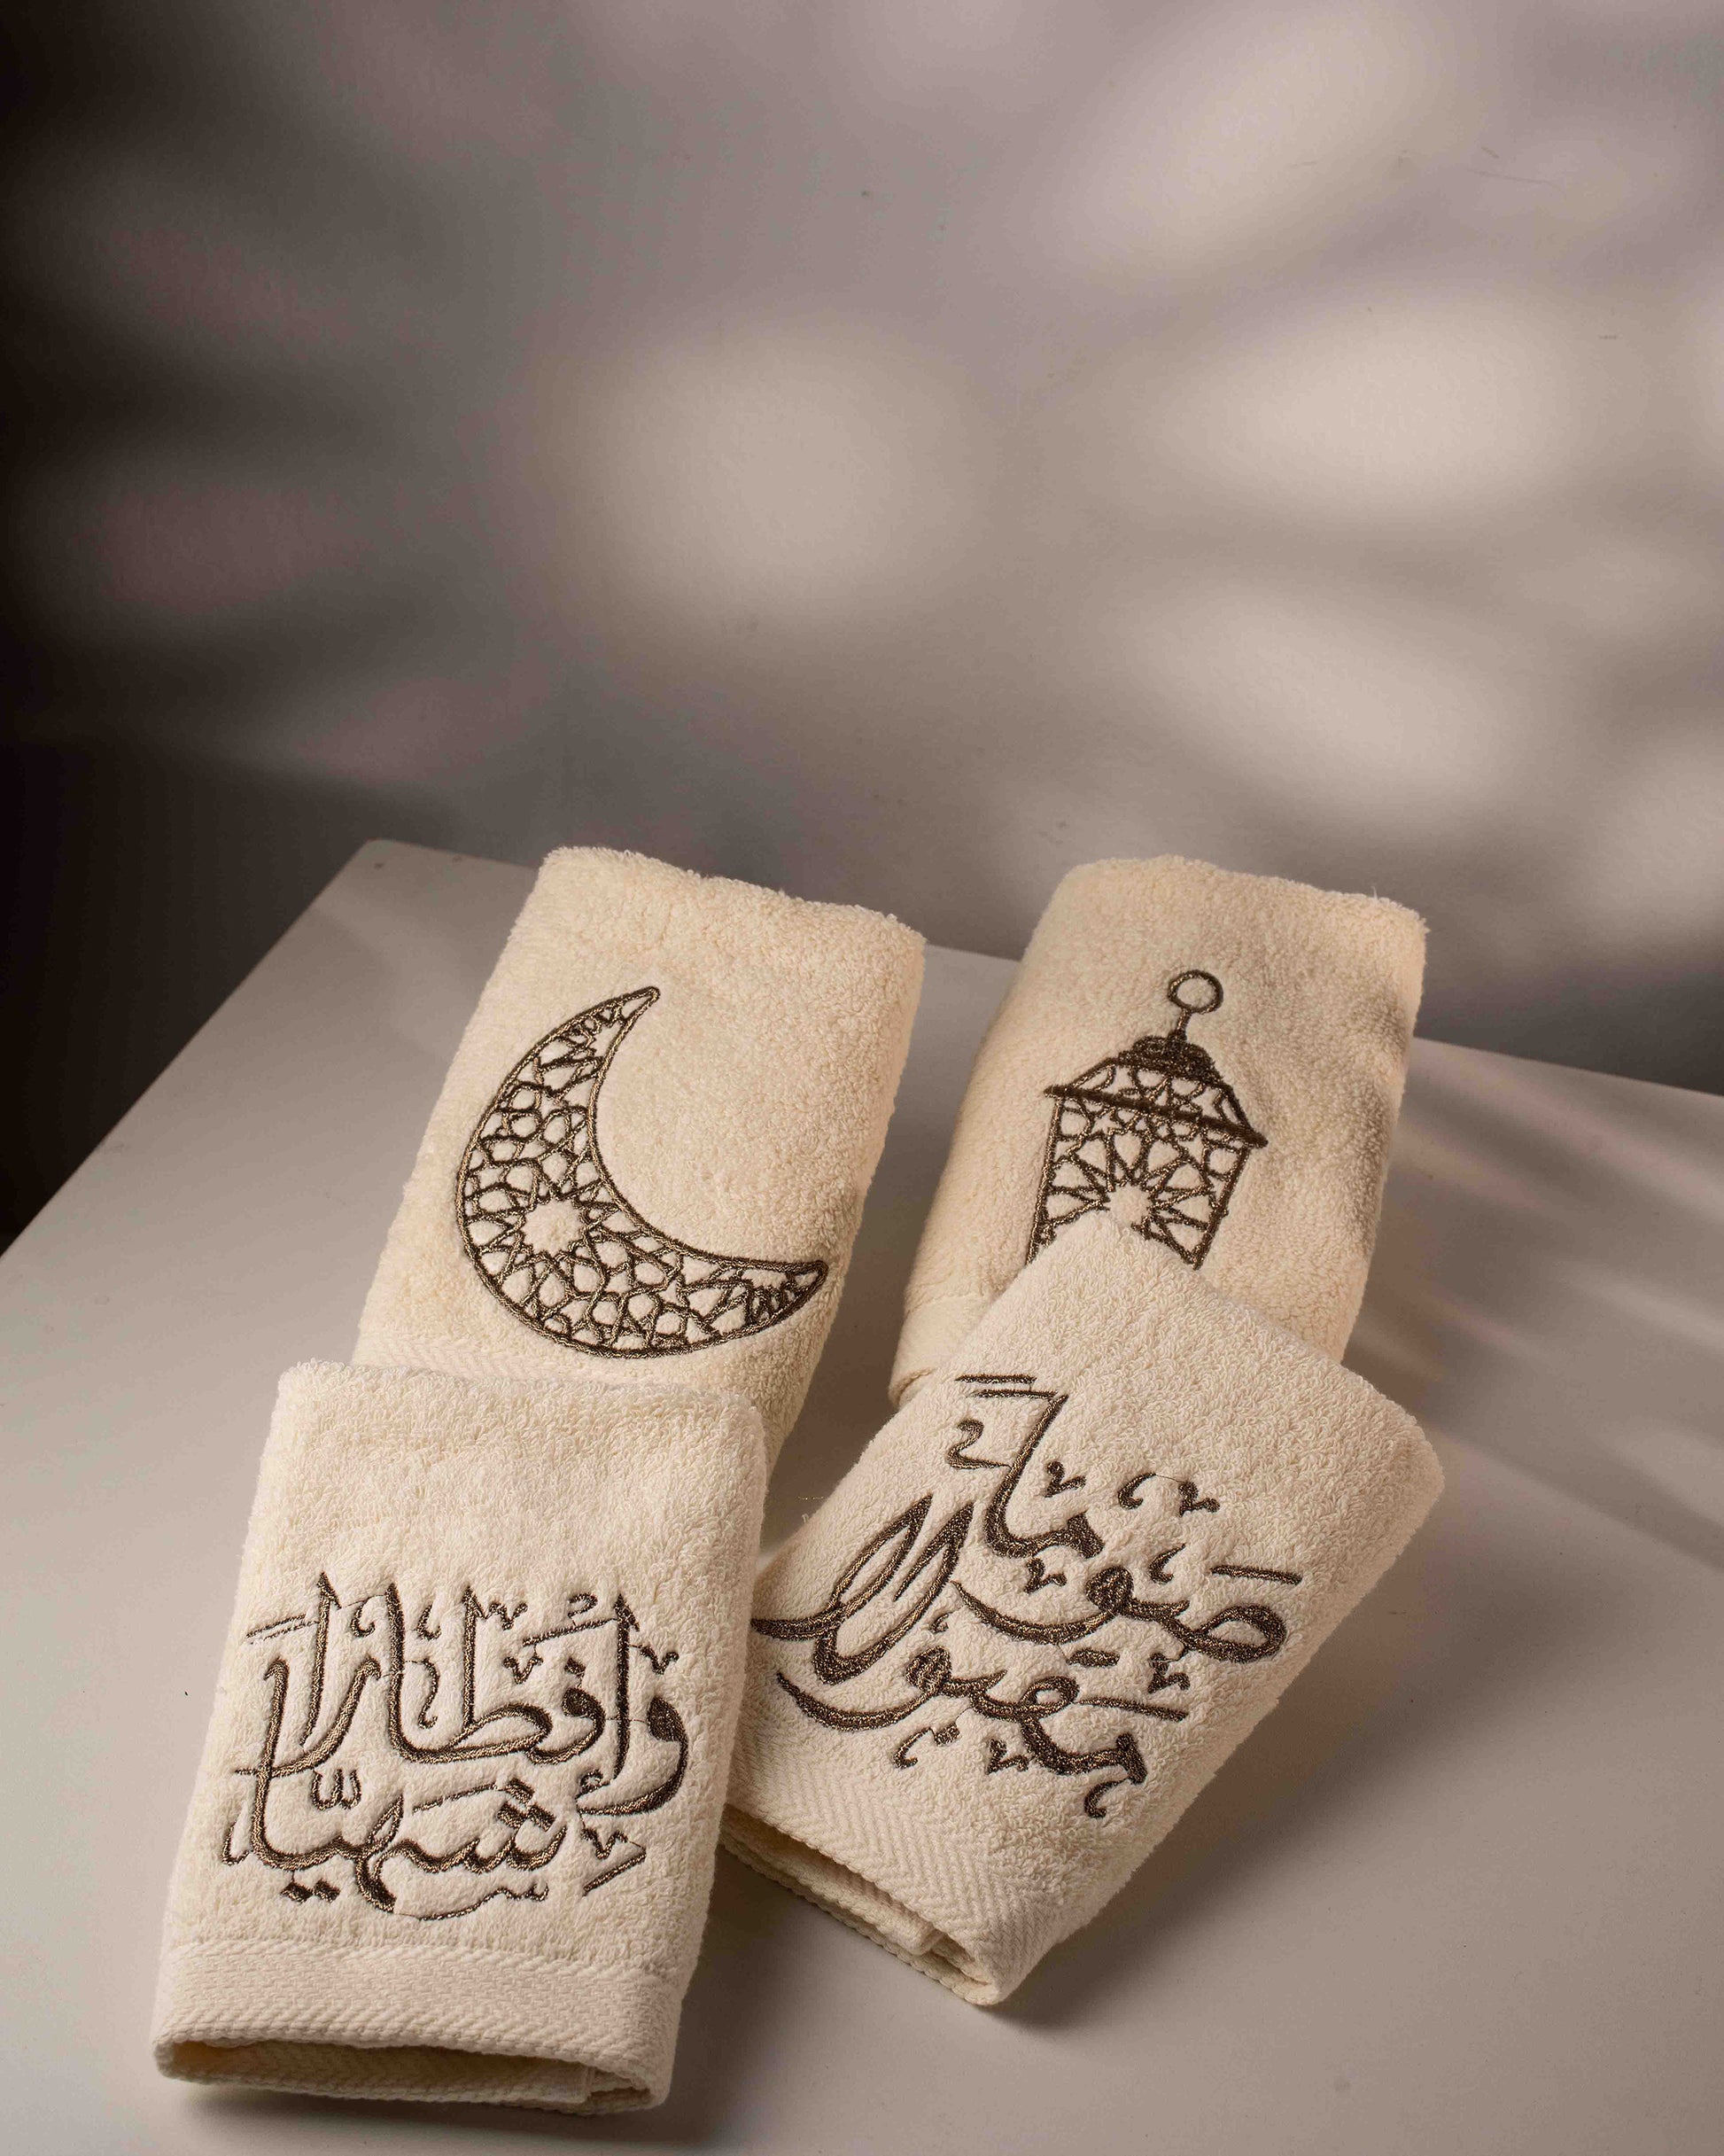 صَوْماً
مَقبولاً
وَإفطاراً
شَهيّاً